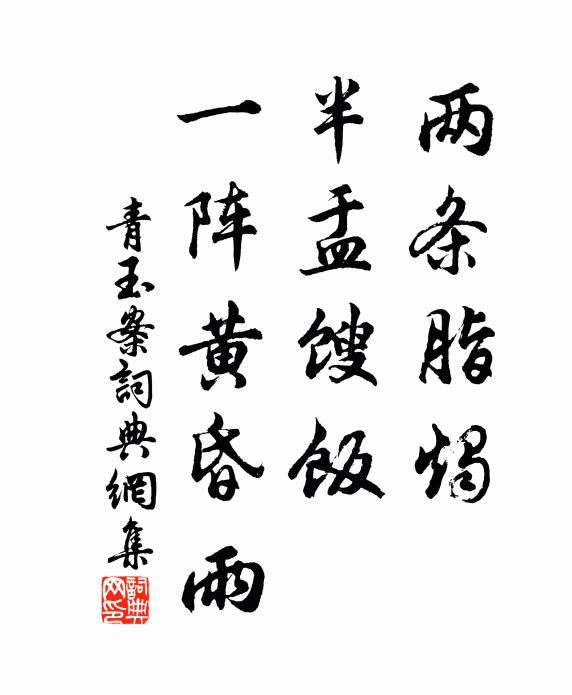 两条脂烛
半盂馊饭
一阵黄昏雨
青玉案詞典網集
詞典网印